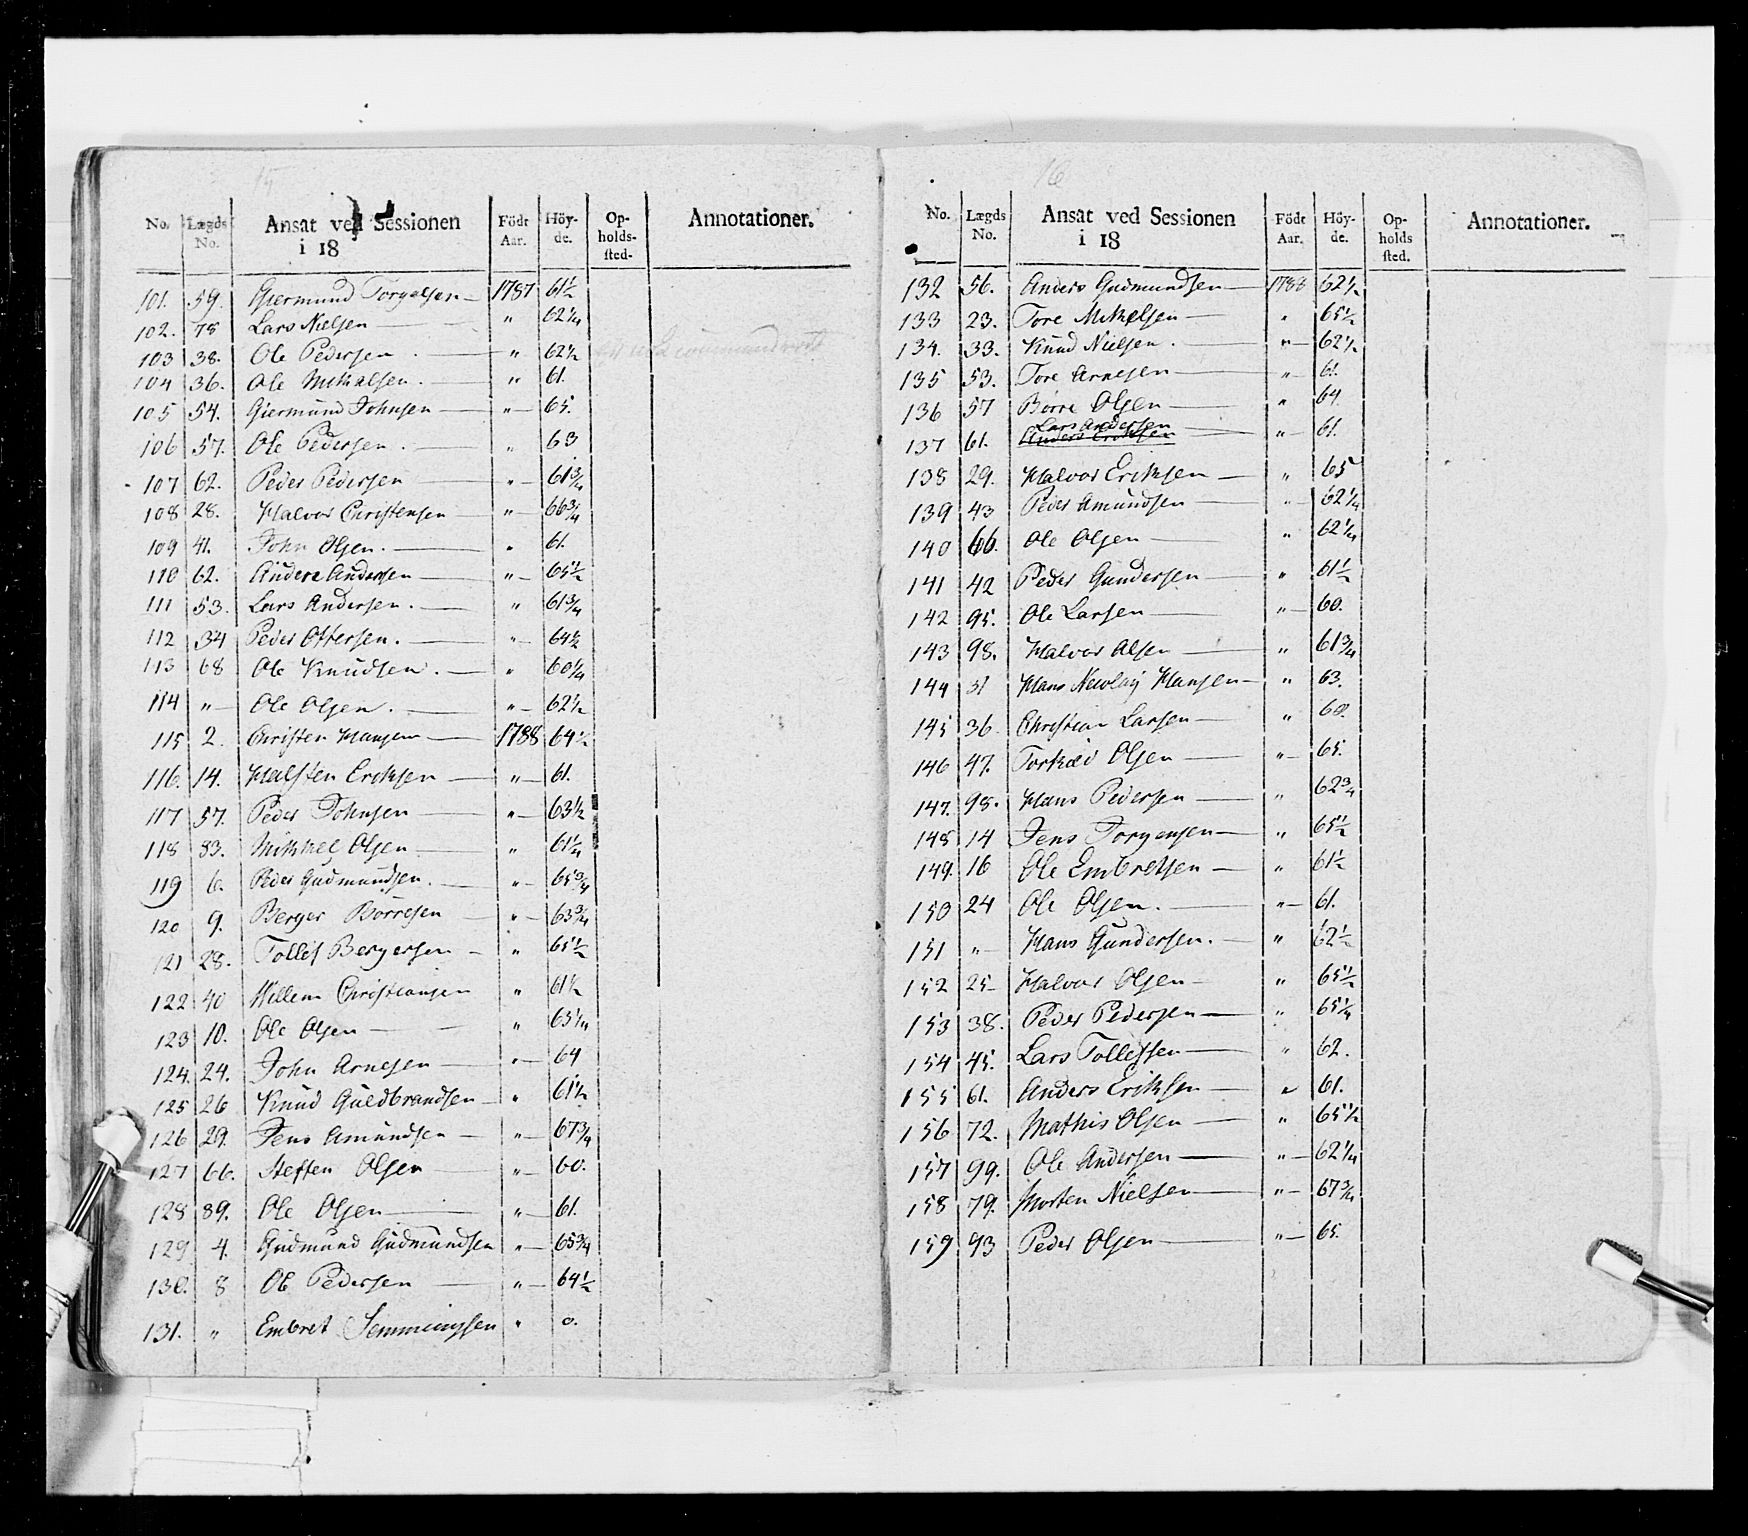 15
No. Lægds No. Ansat ved Sessionen i 18 Födt Aar. Höy-de. Op-holds-sted. Annotationer.
101. 59. Giermund Torgelsen — 1787 61½
102. 78 Lars Nielsen — " 62¼
103 38. Ole Pedersen " 62½
104 36. Ole Mikalsen. — " 61.
105 54. Giermund Johnsen — " — 65.
106 57. Ole Pedersen. — " 63
107 62. Peder Pedersen — " — 61¾
108 28. Halvor Christensen — " — 66¾
109 41. John Olsen. — " 61.
110 62. Anders Andersen — " — 65½
111 53. Lars Andersen. — " 61¾
112 34 Peder Ottersen. — " — 64½
113 68 Ole Knudsen. — " 60¼
114 " — Ole Olsen. — " — 62½
115 2. Christen Hansen — 1788 64½
116. 14. Halsten Eriksen — " — 61.
117 57. Peder Johnsen — " — 63½
118 83. Mikkel Olsen — " 61¼
119 6. Peder Gudmundsen. — " — 65¾
120 9. Berger Börresen — " — 63¾
121 28. Tollef Bergersen — " 65½
122 40 Willem Christiansen " 61½
123 10. Ole Olsen — " 65¼
124. 24. John Arnesen — " — 64
125 26 Knud Guldbrandsen — " 61½
126 29. Jens Amundsen — " — 67¾
127 66. Steffen Olsen — " — 60.
128 89. Ole Olsen — " — 61.
129 4. Gudmund Gudmundsen " — 65¾
130. 8 Ole Pedersen — " — 64½
131. " Embret Semmingsen " 0.
16
No. Lægds No. Ansat ved Sessionen i 18 Födt Aar. Höy-de. Op-holds sted. Annotationer.
132 56. Anders Gudmundsen — 1788 62½
133 23. Tore Mikelsen — " 65½
134. 33. Knud Nielsen. — " — 62½
135 53. Tore Arnesen — " — 61.
136 57 Börre Olsen — " 64.
Lars Andersen
137 61. Anders Eriksen — " — 61.
138 29. Halvor Eriksen — " 65
139 43 Peder Amundsen — " — 62¼
140 66. Ole Olsen — " 62¼
141 42 Peder Gundersen — " 61½
142 95. Ole Larsen — " — 60.
143 98. Halvor Olsen — " 61¾
144 31 Hans Nicolay Hansen — " 63.
145 36. Christian Larsen — " 60.
146 47. Torkild Olsen — " — 65.
147. 98. Hans Pedersen — " 62¾
148 14 Jens Torgensen — " 65½
149. 16 Ole Embretsen — " 61½
150 24 Ole Olsen. — " — 61.
151 " — Hans Gundersen. — " 62½
152 25 — Halvor Olsen — " 65½
153 38. Peder Pedersen — " 65¼
154 45. Lars Tollefsen — " 62.
155 61. Anders Eriksen — " 61.
156 72. Mathis Olsen — " 65½
157 99. Ole Andersen — " — 62¼
158 79. Morten Nielsen — " — 67¾
159 93 Peder Olsen — " — 65.